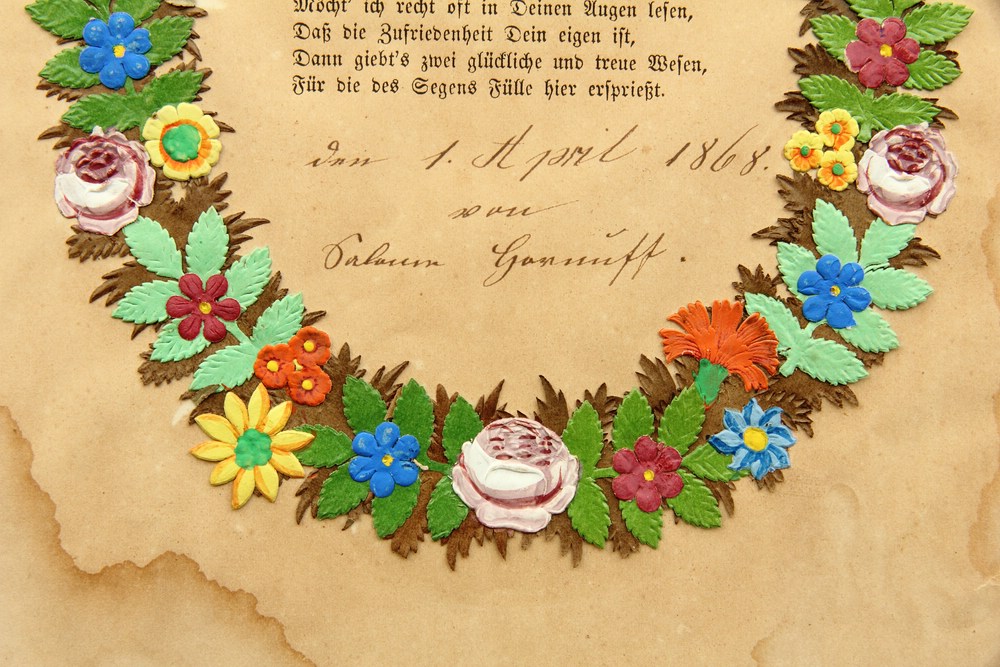 Möcht' ich recht oft in Deinen Augen lesen,
Daß die Zufriedenheit Dein eigen ist,
Dann giebt's zwei glückliche und treue Wesen,
Für die des Segens Fülle hier ersprießt.
den 1. April 1868.
von
Salome Hornuff.